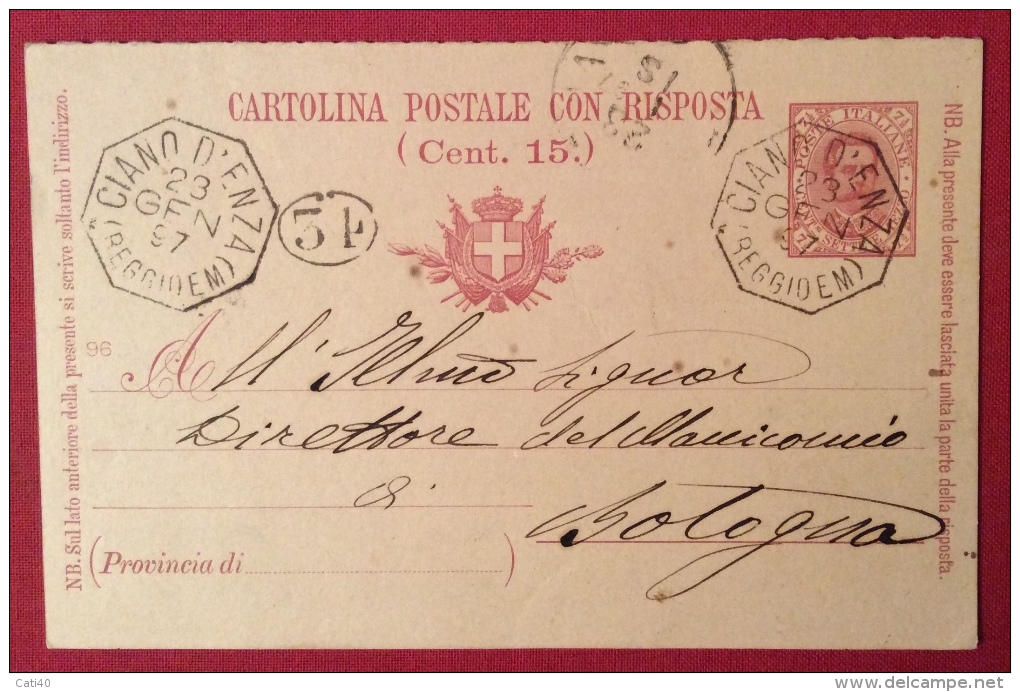 CARTOLINA POSTALE CON RISPOSTA
(Cent. 15.)
CIANO D'ENZA
23
GEN
97
(REGGIO EM)
54
POSTE ITALIANE
CIANO D'ENZA
23
GEN
97
(REGGIO EM)
NB. Sul lato anteriore della presente si scrive soltanto l'indirizzo.
NB. Alla presente deve essere lasciata unita la parte della risposta.
96
All' Illmo Signor
Direttore del Manicomio
di
Bologna
(Provincia di )
Cati40
delcampe.net